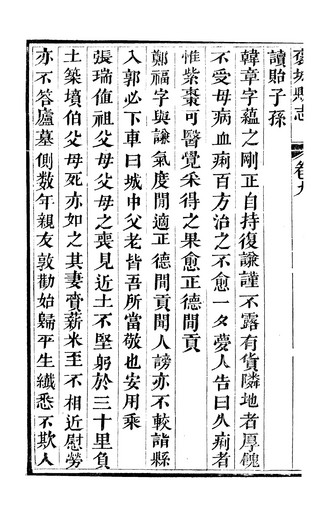 褒城縣志
卷九
讀貽子孫
韓章字蘊之剛正自持復謙謹不露有貨隣地者厚餽
不受母病血痢百方治之不愈一夕夢人告曰久痢者
惟紫棗可醫覺采得之果愈正德間貢
鄭福字與謙氣度閒適正德間貢間人謗亦不較詣縣
入郭必下車曰城中父老皆吾所當敬也安用乘
張瑞值祖父母父母之喪見近土不堅躬於三十里負
土築墳伯父母死亦如之其妻賣薪米至不相近慰勞
亦不答廬墓側数年親友敦勸始歸平生纖悉不欺人